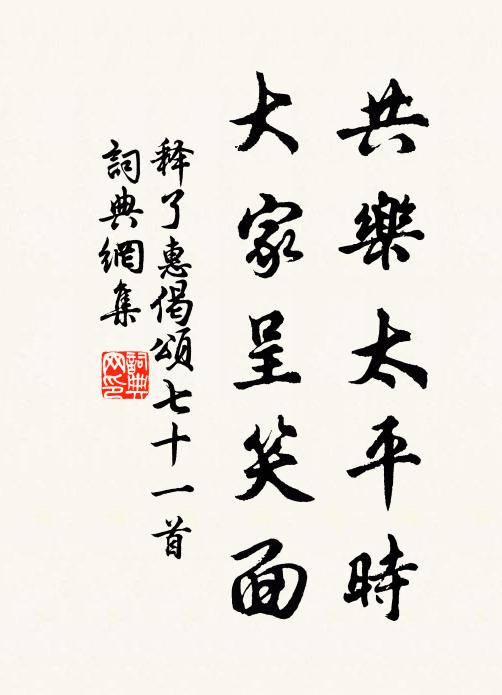 共樂太平時
大家呈笑面
釋了惠偈頌七十一首
詞典網集
詞典
网印